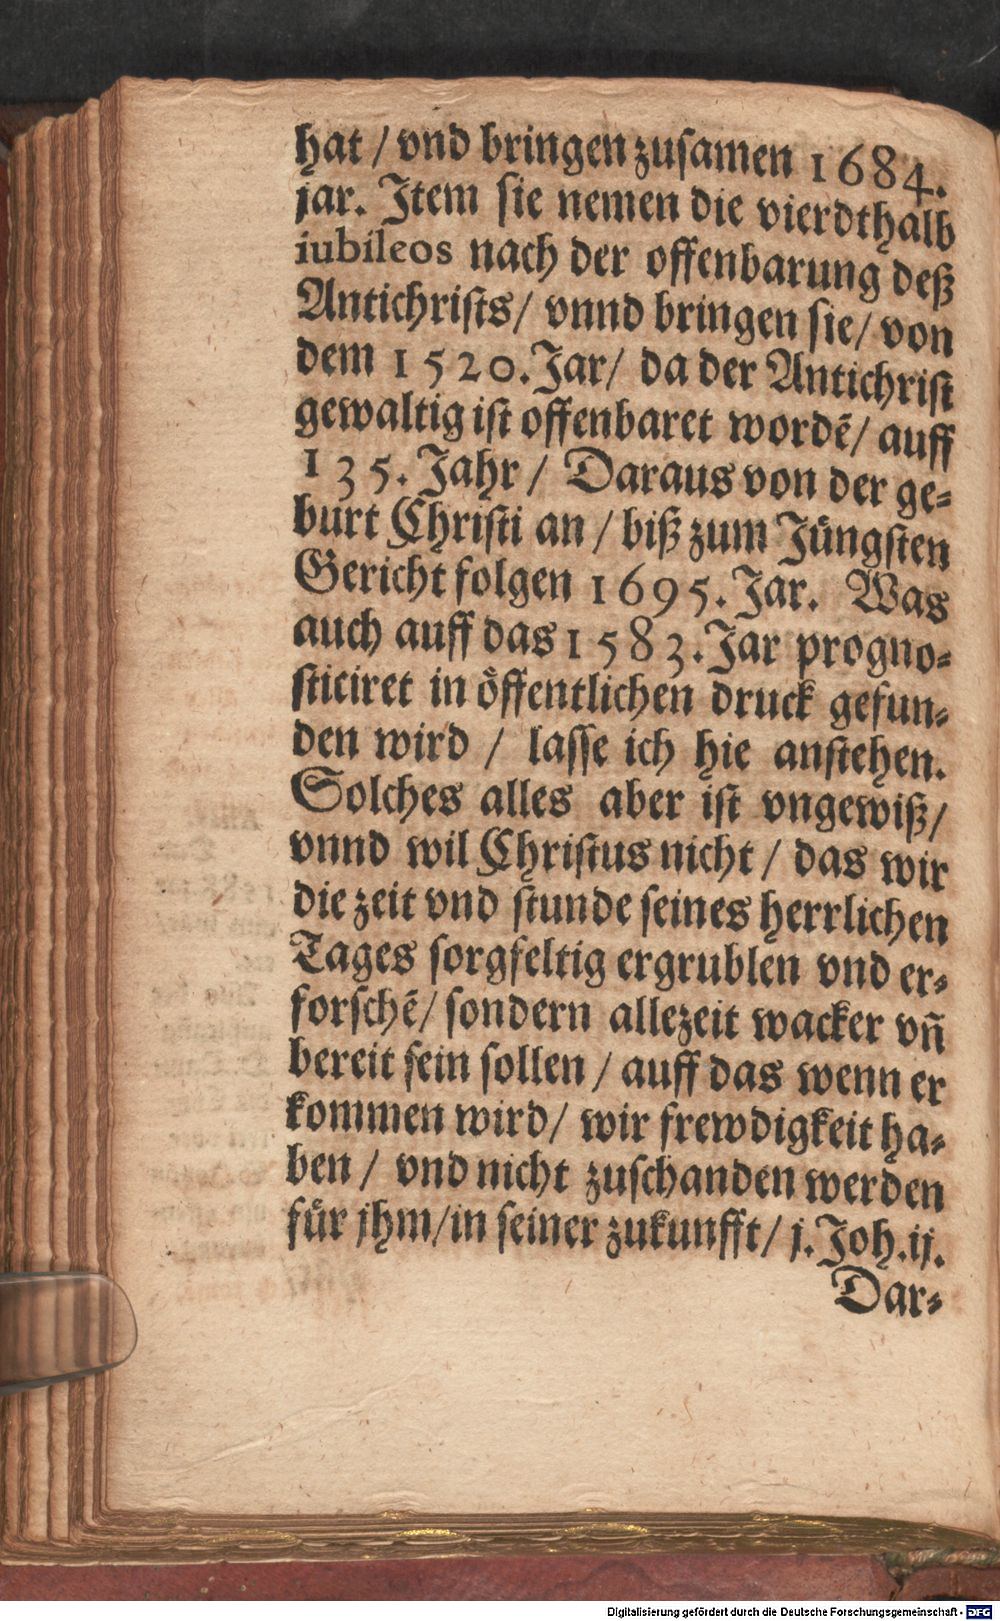 hat / vnd bringen zusamen 1684.
jar. Item sie nemen die vierdthalb
iubileos nach der offenbarung deß
Antichrists/ vnnd bringen sie/ von
dem 1520. Jar/ da der Antichrist
gewaltig ist offenbaret wordē/ auff
135. Jahr / Daraus von der ge-
burt Christi an / biß zum Jüngsten
Gericht folgen 1695. Jar. Was
auch auff das 1583. Jar progno-
sticiret in öffentlichen druck gefun-
den wird / lasse ich hie anstehen.
Solches alles aber ist vngewiß/
vnnd wil Christus nicht / das wir
die zeit vnd stunde seines herrlichen
Tages sorgfeltig ergrublen vnd er-
forschē/ sondern allezeit wacker vn̄
bereit sein sollen / auff das wenn er
kommen wird/ wir frewdigkeit ha-
ben / vnd nicht zuschanden werden
für jhm/in seiner zukunfft/ j. Joh. ij.
Dar-
Digitalisierung gefördert durch die Deutsche Forschungsgemeinschaft - DFG